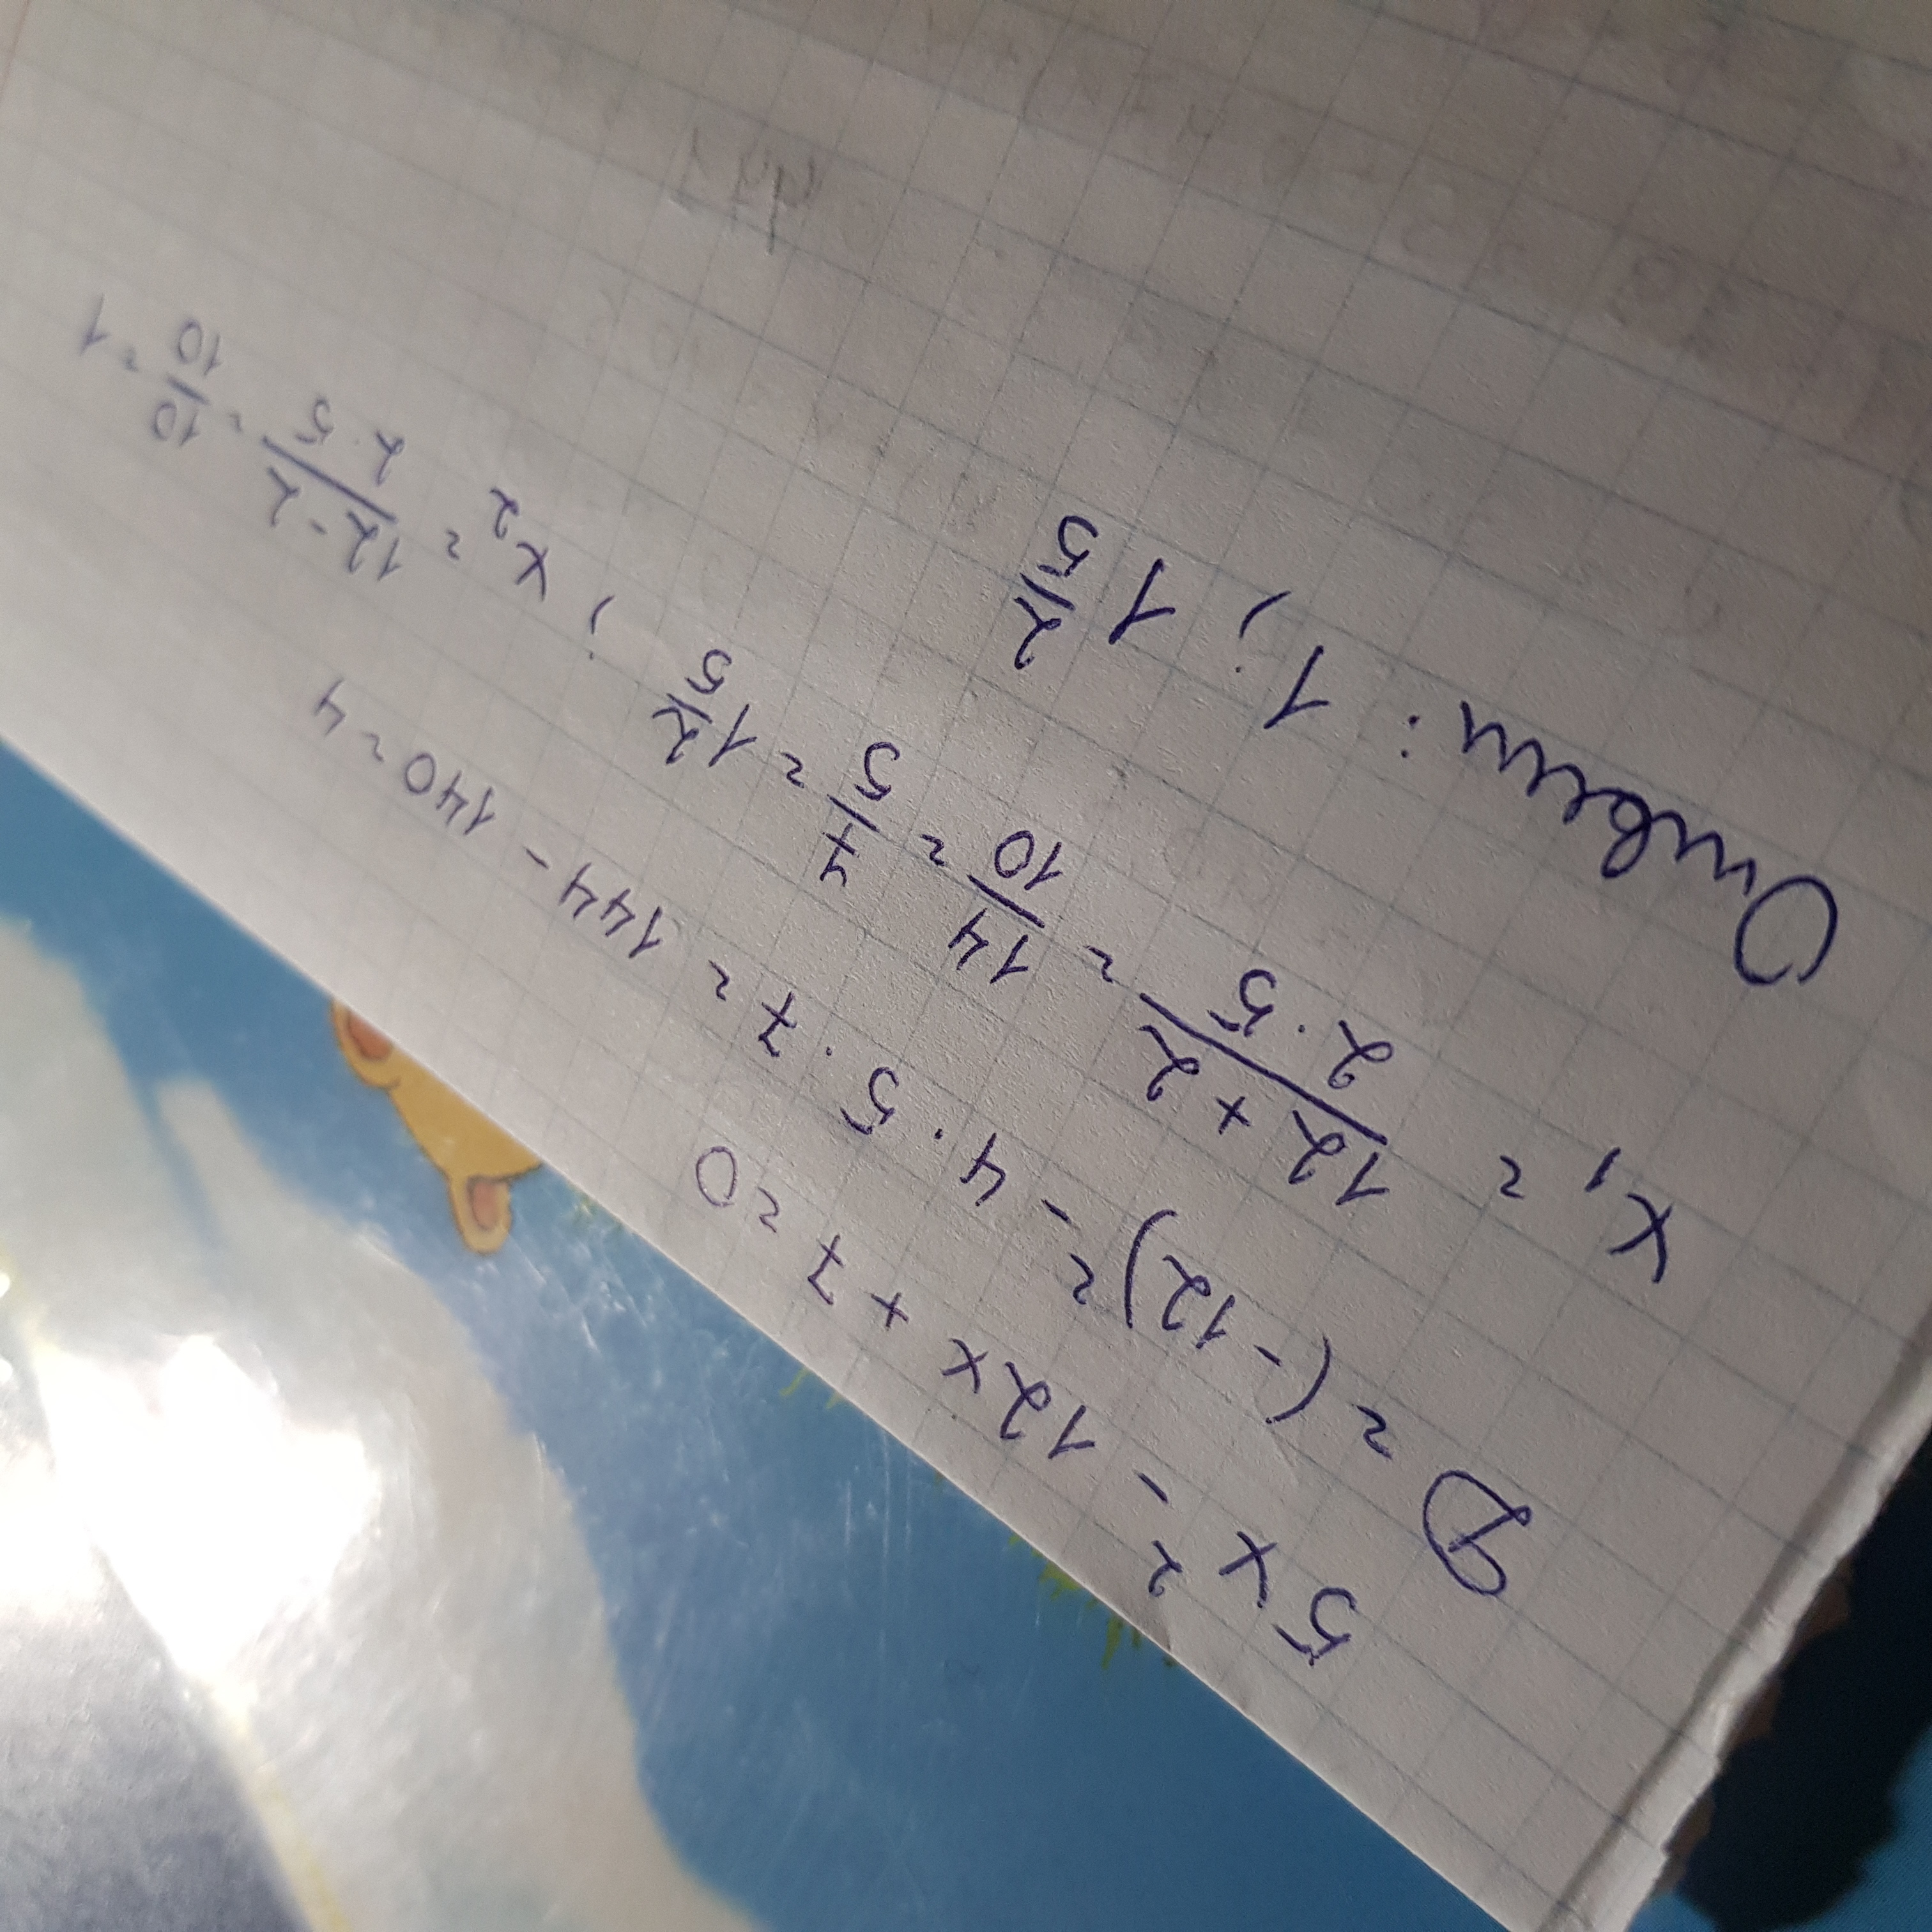 5x² - 12x + 7 = 0
D = (-12)² - 4 · 5 · 7 = 144 - 140 = 4
x₁ = (12 + 2)/(2 · 5) = 14/10 = 7/5 = 1 2/5 ; x₂ = (12 - 2)/(2 · 5) = 10/10 = 1
Ответ: 1; 1 2/5